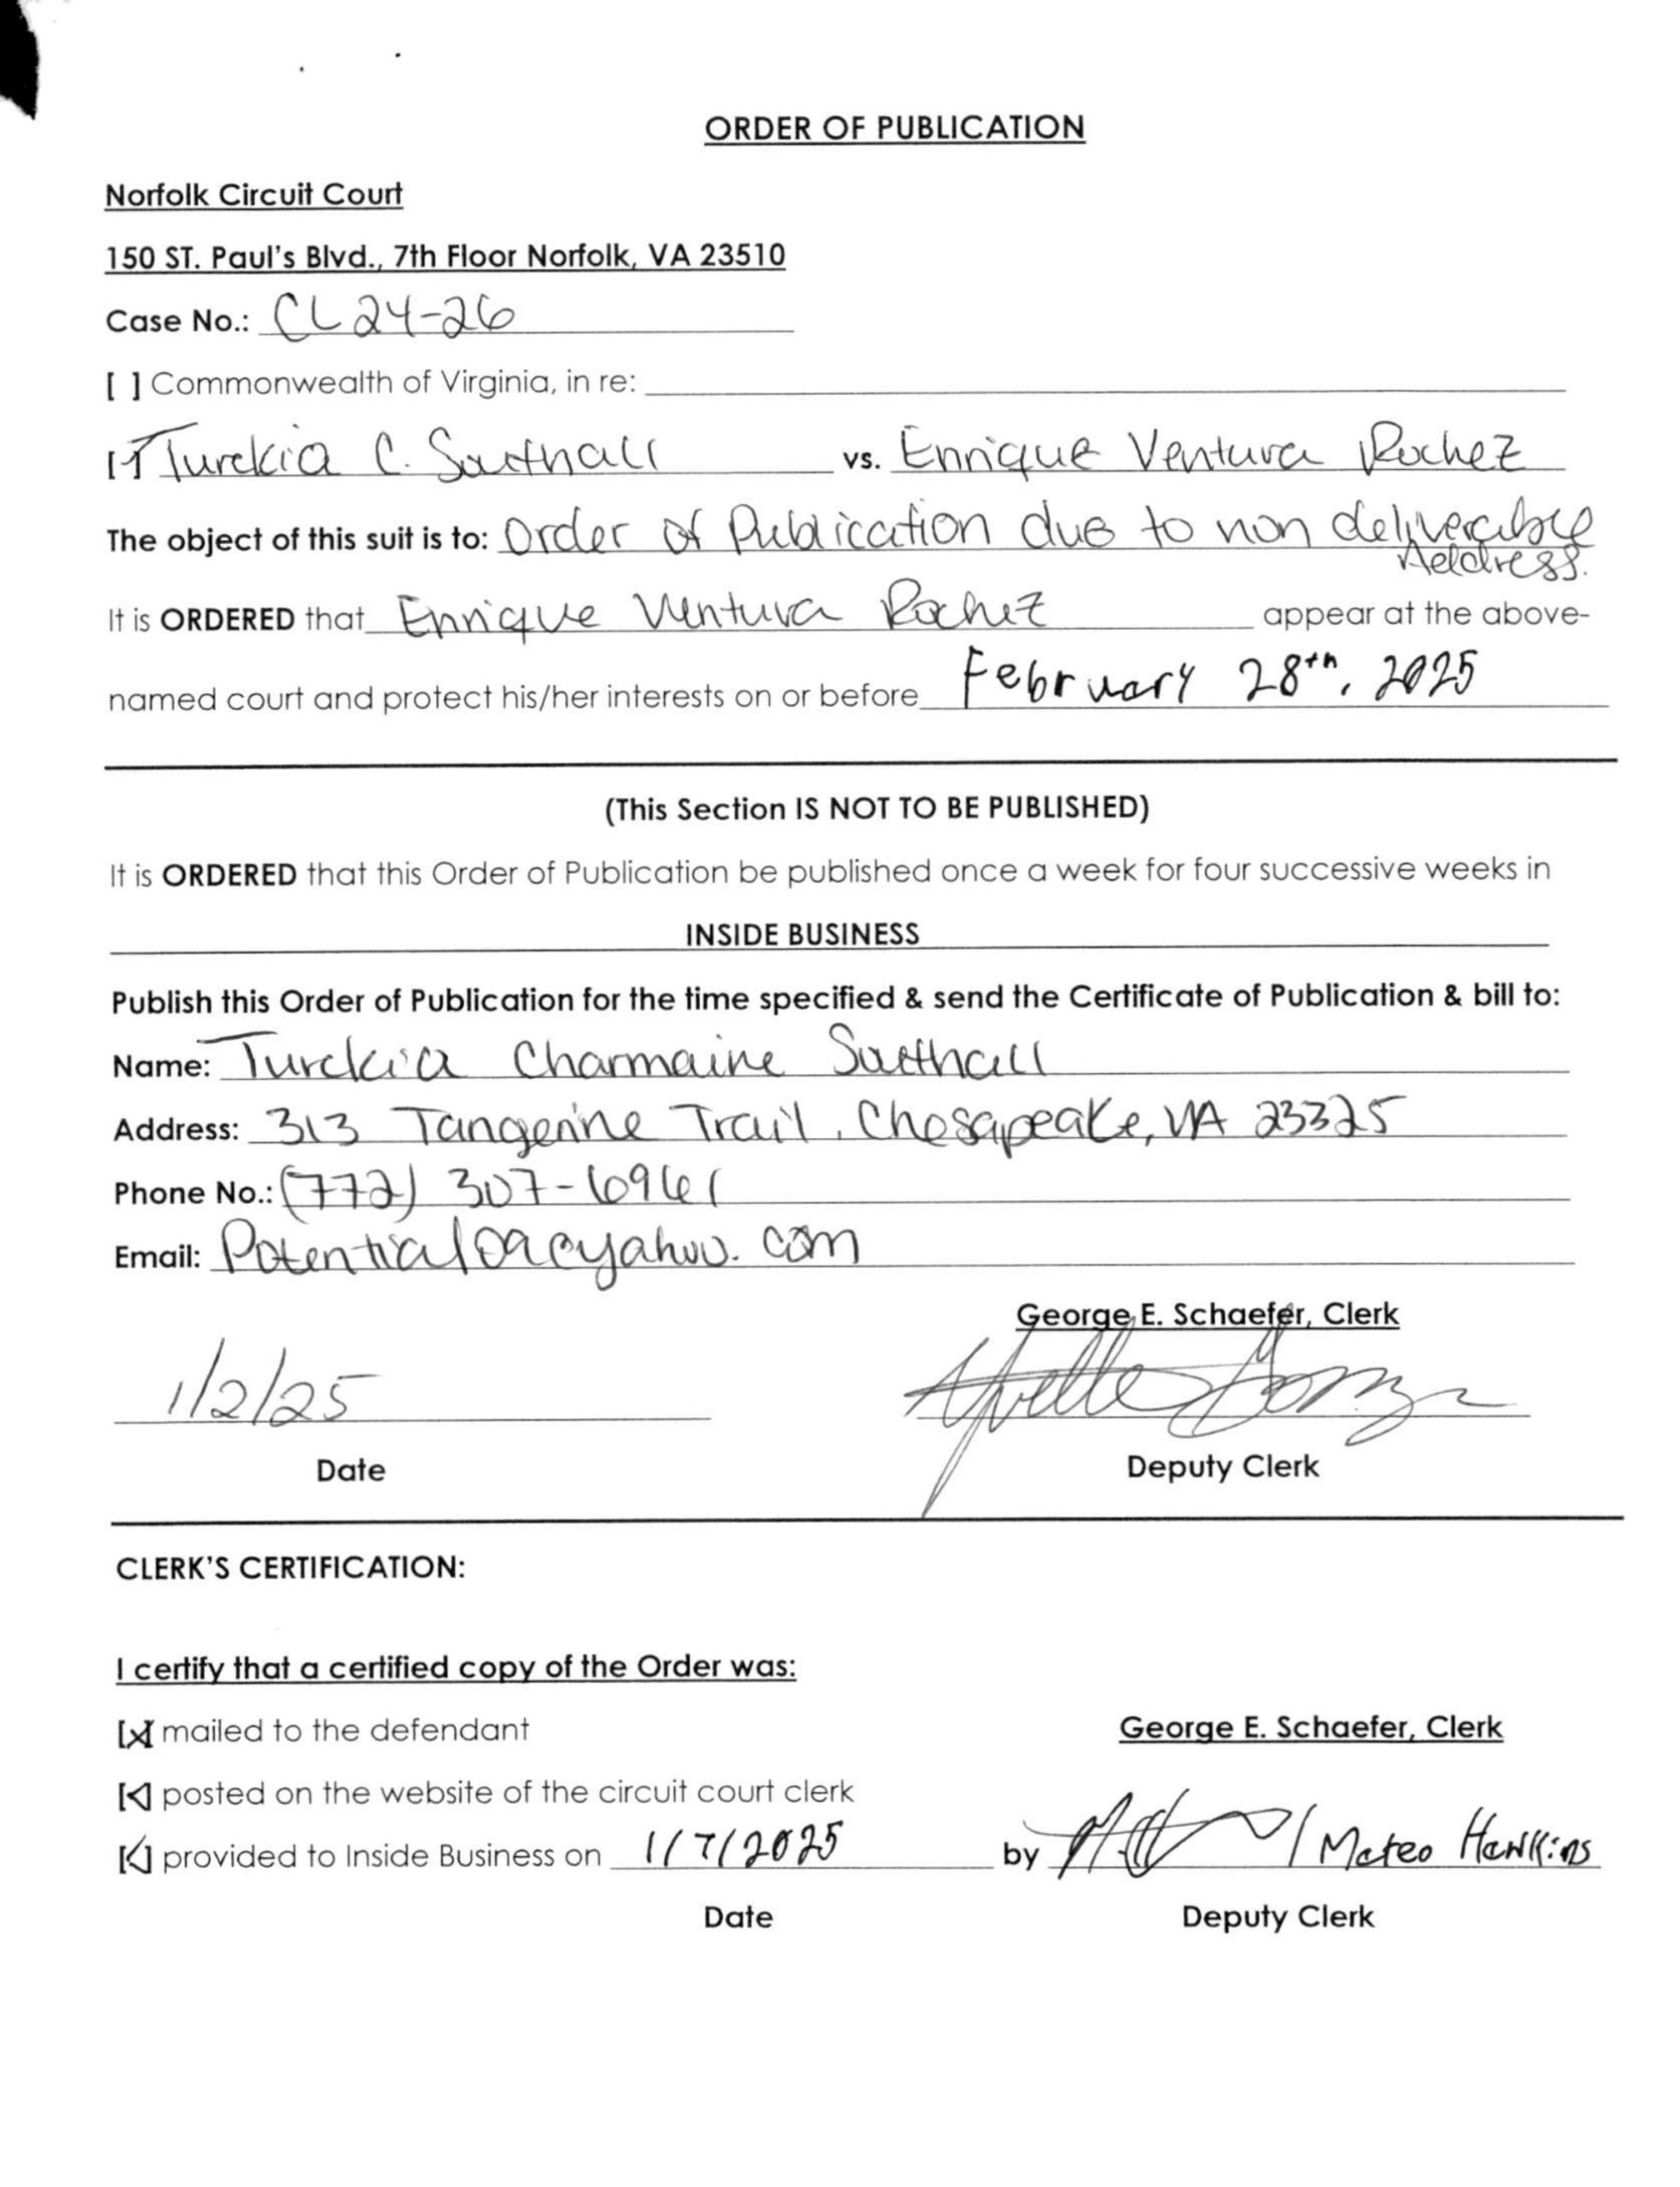 ORDER OF PUBLICATION
Norfolk Circuit Court
150 ST. Paul's Blvd., 7th Floor Norfolk, VA 23510
Case No.: CL24-26
[ ] Commonwealth of Virginia, in re:
Turckia C. Southall vs. Enrique Ventura Rochez
The object of this suit is to: Order of Publication due to non deliverable
Address.
It is ORDERED that Enrique Ventura Rochez appear at the above-
named court and protect his/her interests on or before February 28th, 2025
(This Section IS NOT TO BE PUBLISHED)
It is ORDERED that this Order of Publication be published once a week for four successive weeks in
INSIDE BUSINESS
Publish this Order of Publication for the time specified & send the Certificate of Publication & bill to:
Name: Turckia Charmaine Southall
Address: 313 Tangerine Trail, Chesapeake, VA 23325
Phone No.: (772) 307-6961
Email:
George E. Schaefer, Clerk
1/2/25
Date Deputy Clerk
CLERK'S CERTIFICATION:
I certify that a certified copy of the Order was:
[x] mailed to the defendant George E. Schaefer, Clerk
[✓] posted on the website of the circuit court clerk
[✓] provided to Inside Business on 1/7/2025 by / Mateo Hawkins
Date Deputy Clerk